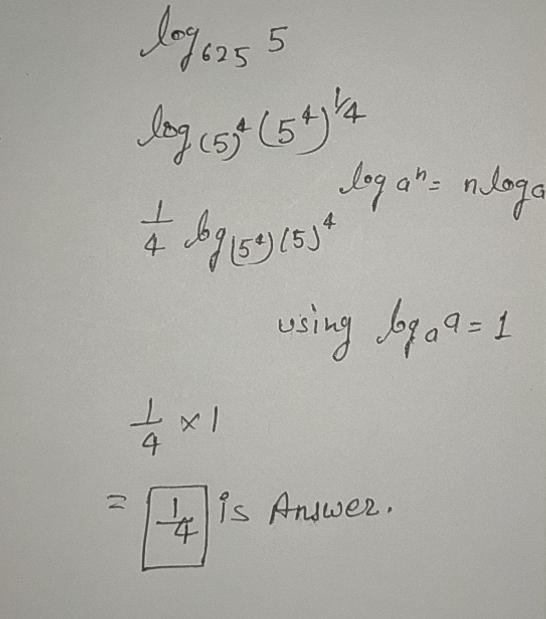 log₆₂₅ 5
log₍₅₎⁴ (5⁴)^¼
log aⁿ = n log a
1/4 log₍₅⁴₎ (5)⁴
using logₐ a = 1
1/4 × 1
= 1/4 is Answer.